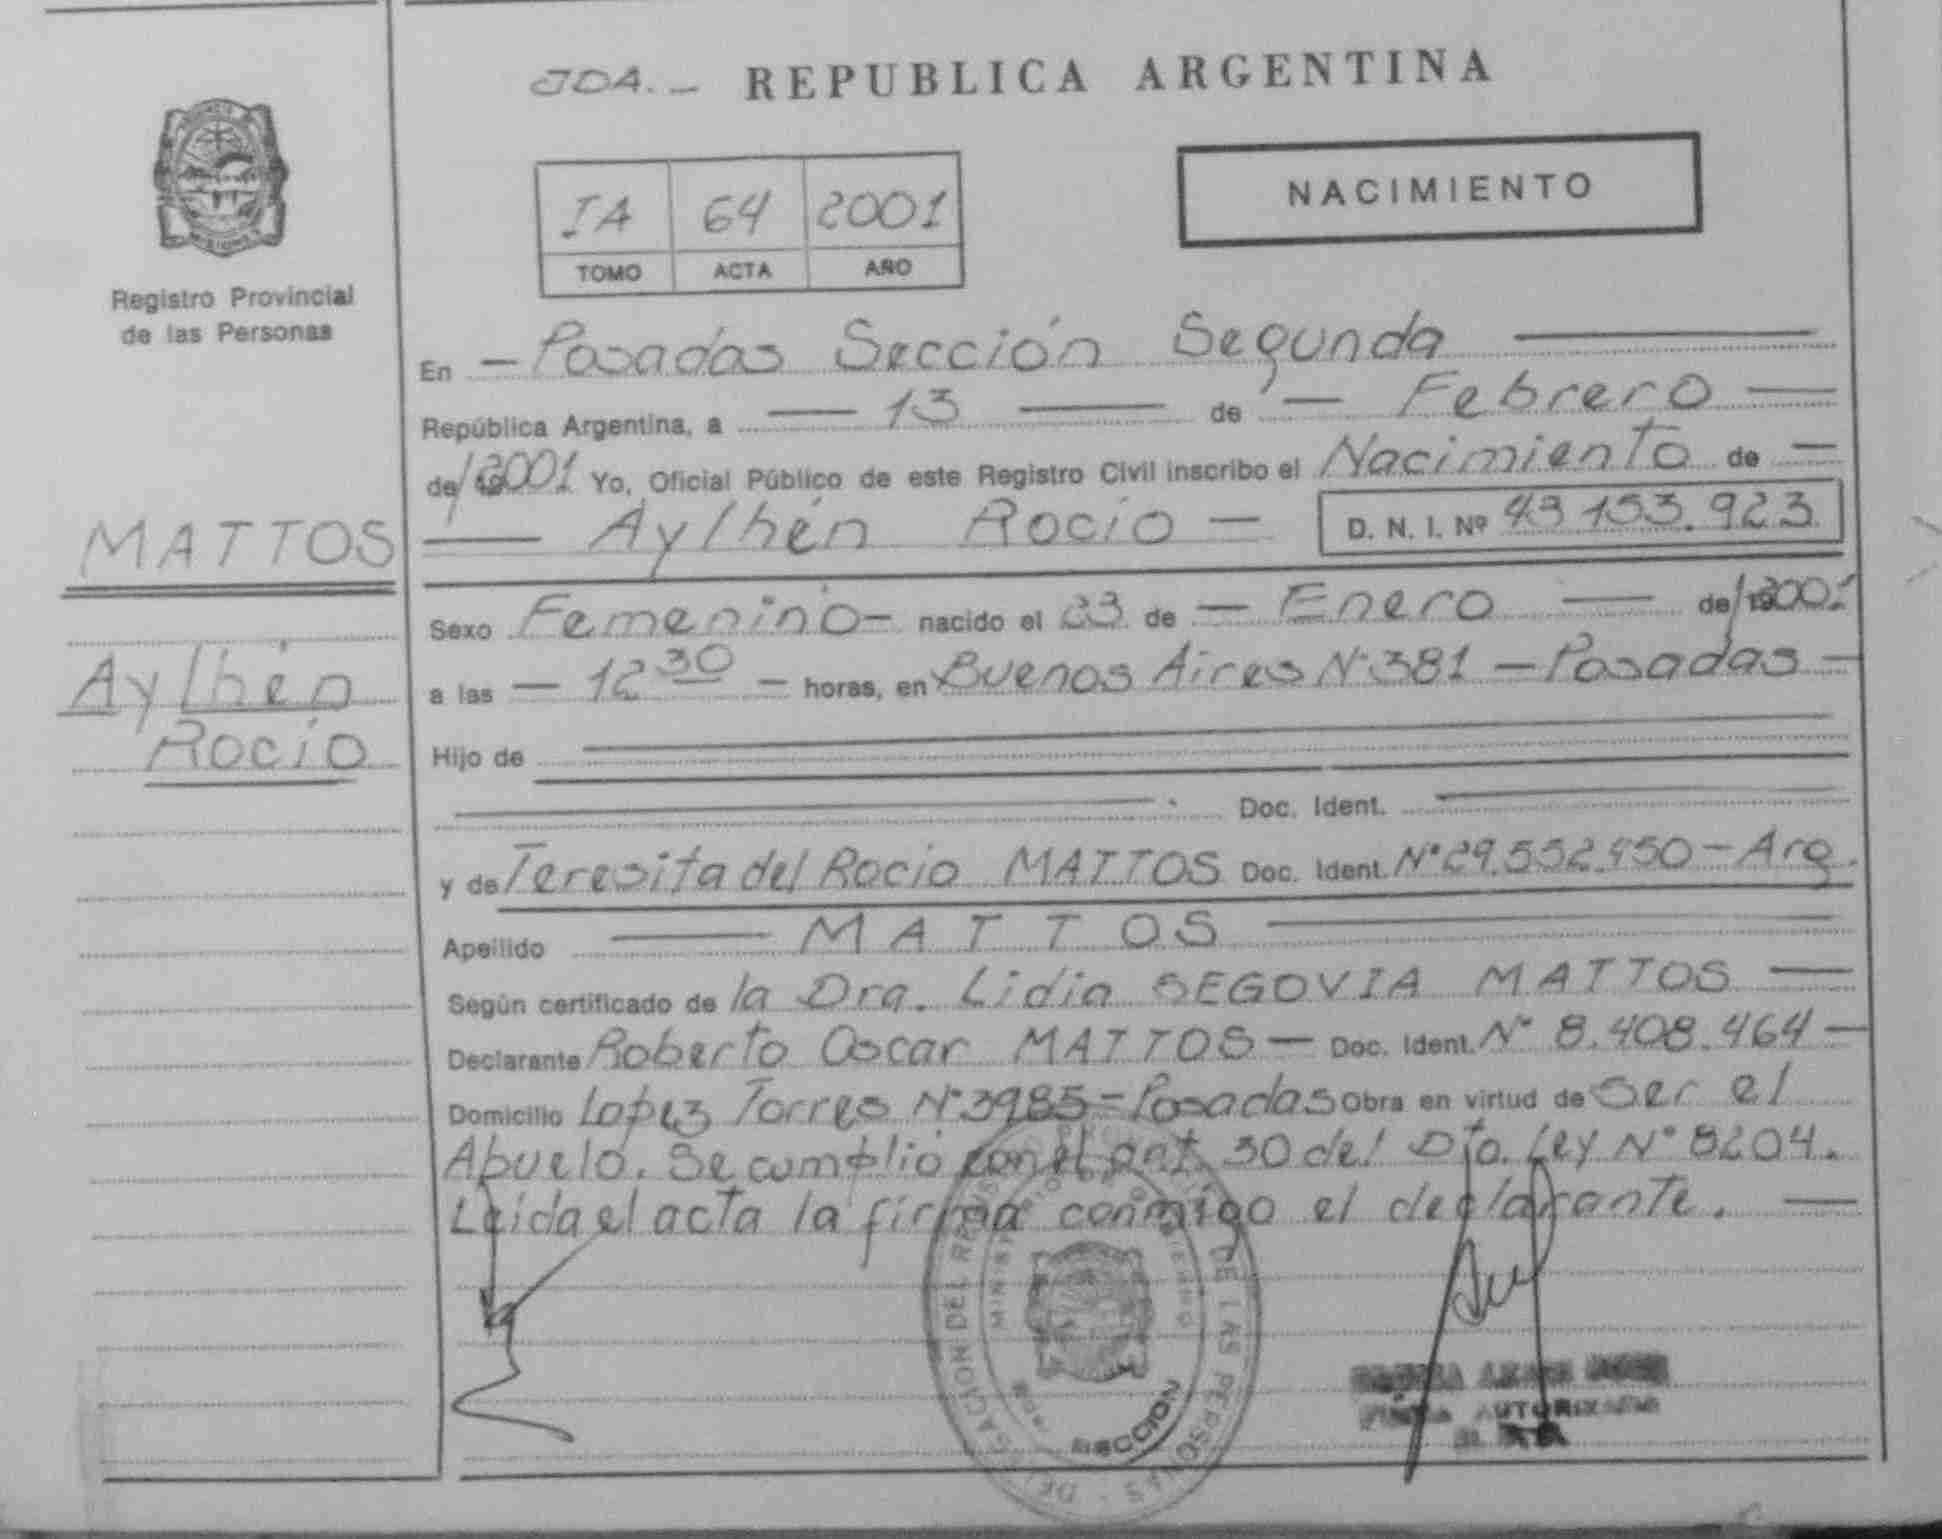 JDA.- REPUBLICA ARGENTINA
IA 64 2001
TOMO ACTA AÑO
NACIMIENTO
Registro Provincial
de las Personas
En - Posadas Sección Segunda
República Argentina, a 13 de - Febrero
de 2001 Yo, Oficial Público de este Registro Civil inscribo el Nacimiento de -
Aylhén Rocío - D. N. I. Nº 43 153.923
MATTOS
Aylhén
Rocío
Sexo Femenino - nacido el 23 de - Enero de 2001
a las - 12 30 - horas, en Buenos Aires Nº 381 - Posadas -
Hijo de
Doc. Ident.
y de Teresita del Rocio MATTOS Doc. Ident. Nº 29.552.950 - Arg.
Apellido MATTOS
Según certificado de la Dra. Lidia SEGOVIA MATTOS
Declarante Roberto Oscar MATTOS - Doc. Ident. Nº 8.408.464 -
Domicilio Lopez Torres Nº 3985 - Posadas Obra en virtud de ser el
Abuelo. Se cumplió con el art. 30 del Dto. Ley Nº 8204.
Leida el acta la firma conmigo el declarante.
DELEGACION DEL REGISTRO PROVINCIAL DE LAS PERSONAS
MINISTERIO DE GOBIERNO
SECCION
FIRMA AUTORIZADA